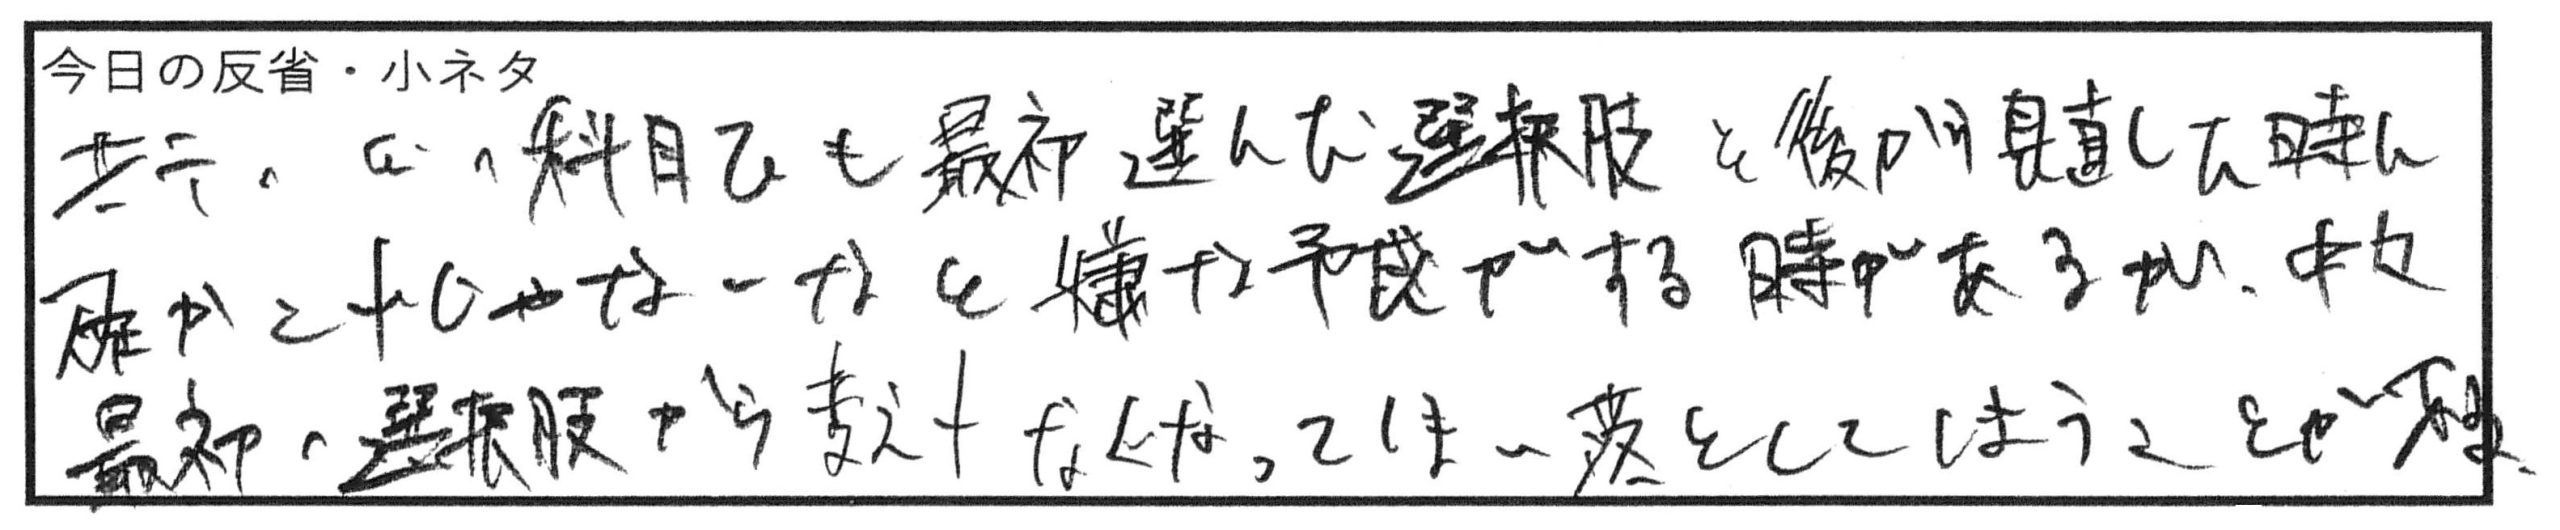 今日の反省・小ネタ
共テの どの科目でも最初選んだ選択肢を後から見直した時に
確かこれじゃないなと嫌な予感がする時があるが、中々
最初の選択肢から変えれなくなってしまい落としてしまうことが